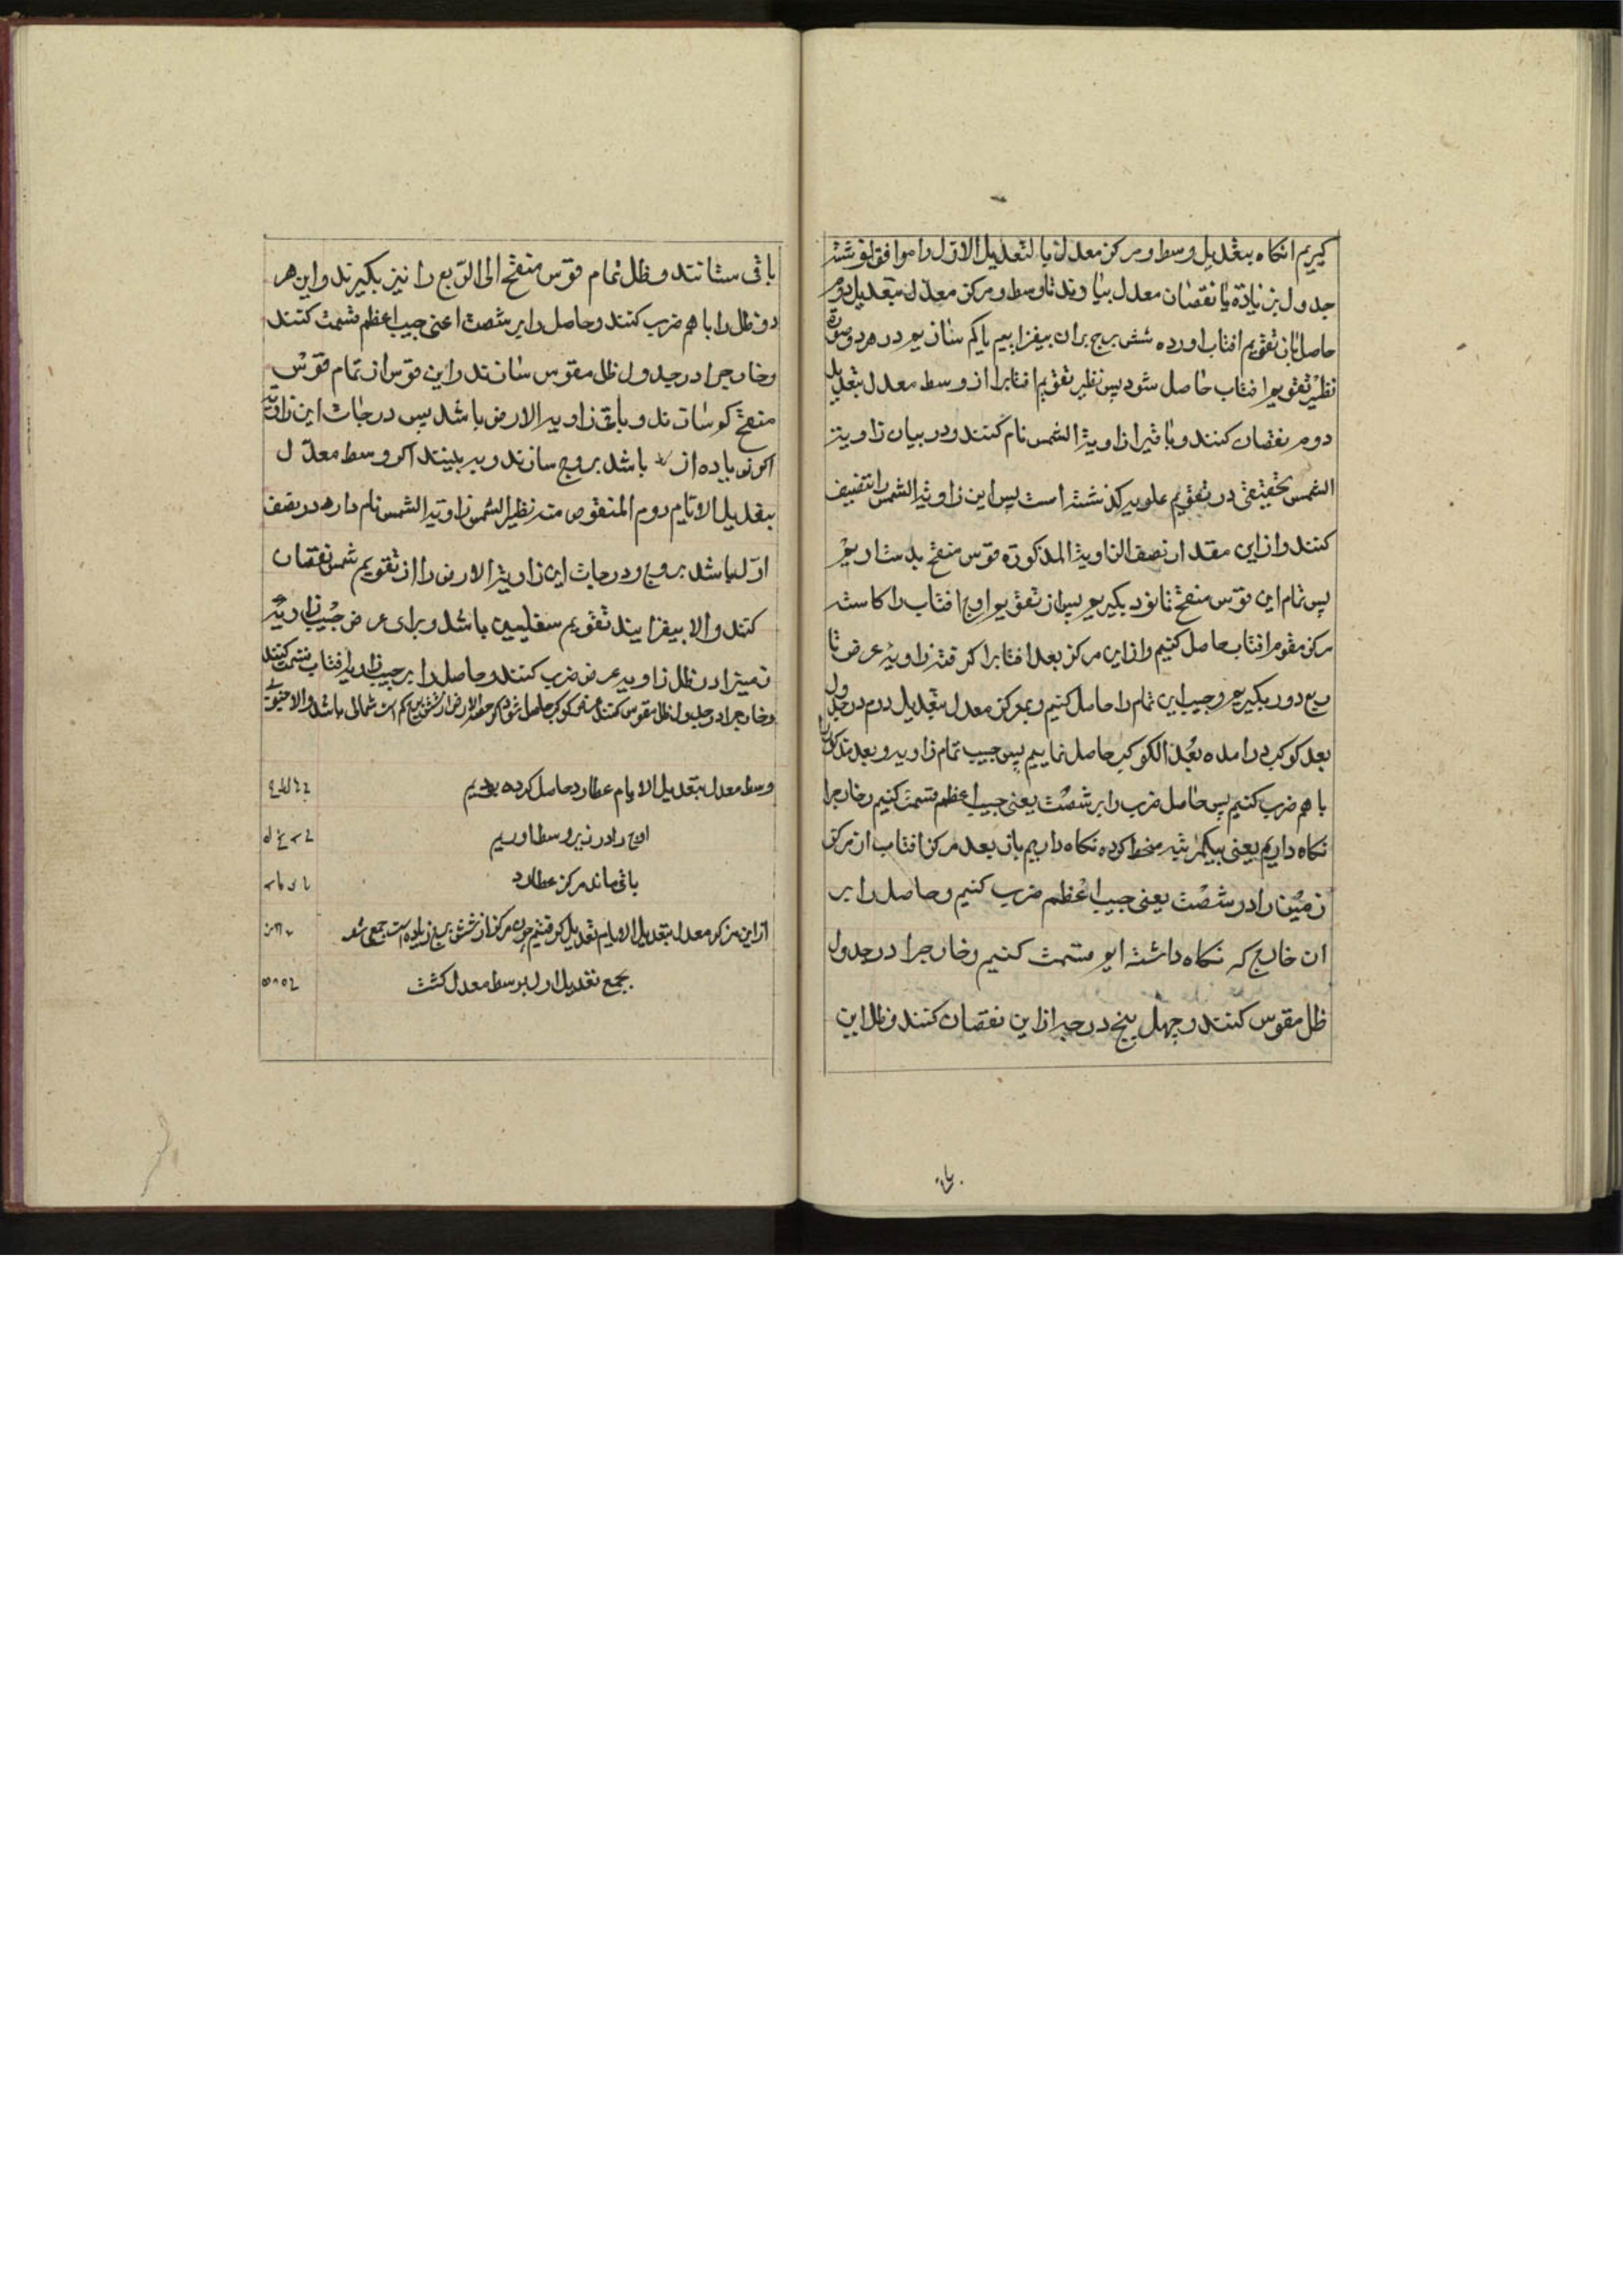 کیریم انکاه بتعدیل وسط و مرکز معدل بالتعدیل الاول را موافق نوشته
جدول بزیادة یا نقصان معدل بیاورند تا وسط و مرکز معدل بتعدیل دوم
حاصل باز تقویم افتاب اورده شش برج بران بیفزاییم یا کم سازیم در هر دو صورة
نظیر تقویم افتاب حاصل شود پس نظیر تقویم افتابرا از وسط معدل بتعدیل
دوم نقصان کنند و باقیرا زاویة الشمس نام کنند و در بیان زاویة
الشمس تحقیقی در تقویم علویه کذشته است پس این زاویة الشمس را تنصیف
کنند و از این مقدار نصف الزاویة المذکورة قوس منقح بدست اریم
پس تمام این قوس منقح تا نود بکیریم پس از تقویم اوج افتاب را کاسته
مرکز مقوم افتاب حاصل کنیم و از این مرکز بعد افتابرا کرفته زاویه عرض تا
ربع دور بکیریم و جیب این تمام را حاصل کنیم و بمرکز معدل بتعدیل دوم در جدول
بعد کوکب درامده بعد الکوکب حاصل نماییم پس جیب تمام زاویه و بعد مذکور را
با هم ضرب کنیم پس حاصل ضرب را بر شصت یعنی جیب اعظم قسمت کنیم و خارجرا
نکاه داریم یعنی بیکمرتبه منحط کرده نکاه داریم باز بعد مرکز افتاب از مرکز
زمین را در شصت یعنی جیب اعظم ضرب کنیم و حاصل را بر
ان خارج که نکاه داشته ایم قسمت کنیم و خارجرا در جدول
ظل مقوس کنند و چهل پنج درجه از این نقصان کنند و ظل این
باقی
باقی ستانند و ظل تمام قوس منقح الی الربع را نیز بکیرند و این هر
دو ظل را با هم ضرب کنند و حاصل را بر شصت اعنی جیب اعظم قسمت کنند
و خارجرا در جدول ظل مقوس سازند و این قوس از تمام قوس
منقح کم سازند و باقی زاویه الارض باشد پس درجات این زاویه
اکر زیاده از باشد بروج سازند و به بینند اکر وسط معدل
بتعدیل الایام دوم المنقوص منه نظیر الشمس زاویة الشمس نام دارد در نصف
اول باشد بروج و درجات این زاویة الارض را از تقویم شمس نقصان
کنند والا بیفزایند تقویم سفلیین باشد و برای عرض جیب زاویه
زمینرا در ظل زاویه عرض ضرب کنند و حاصل را بر جیب زاویه افتاب قسمت کنند
و خارجرا در جدول ظل مقوس کنند عرض کوکب حاصل شود کم است شمالی باشد والا جنوبی
وسط معدل بتعدیل الایام عطارد حاصل کرده بودیم
اوج را در زیر وسط اوریم
باقی ماند مرکز عطارد
از این مرکز معدل بتعدیل الایام تعدیل کرفتیم چون مرکز از شش برج زیاده است جمعی شد
بجمع تعدیل اول بر وسط معدل کشت